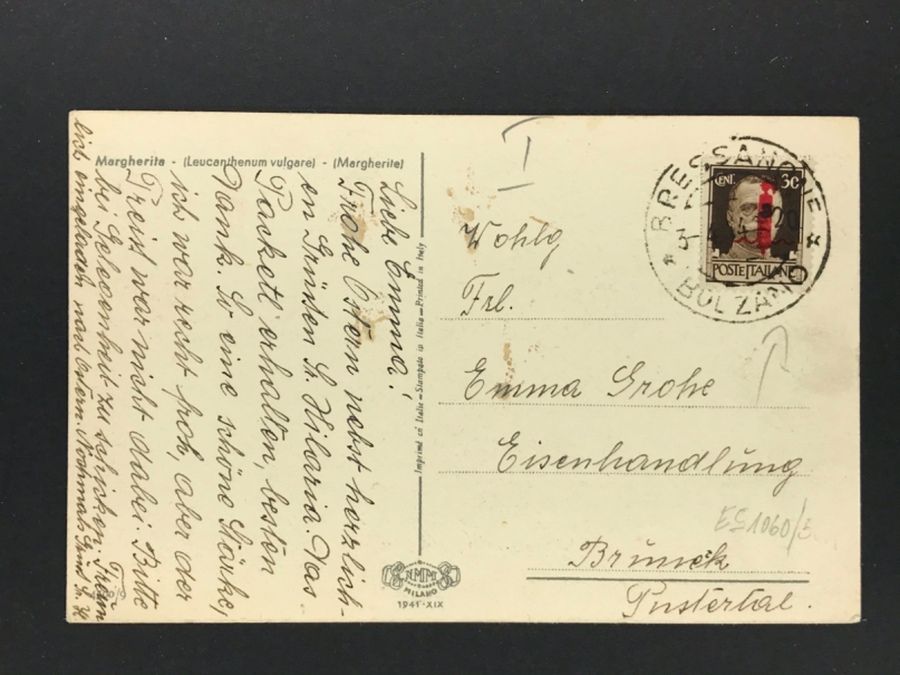 Margherita - (Leucanthenum vulgare) - (Margherite)
Liebe Emma!
Frohe Ostern nebst herzlich-
en Grüßen Sr. Hilaria. Das
Packetl erhalten, besten
Dank. So eine schöne Stärke,
ich war recht froh, aber der
Preis war nicht dabei. Bitte
bei Gelegenheit zu schicken.
lich eingeladen nach Ostern. Nochmals
Imprimé en Italie - Stampato in Italia - Printed in Italy
NMM
MILANO
1941-XIX
I
BRESSANONE
BOLZANO
CENT. 30
POSTE ITALIANE
Wohlg
Frl.
Emma Grohe
Eisenhandlung
Bruneck
Pustertal.